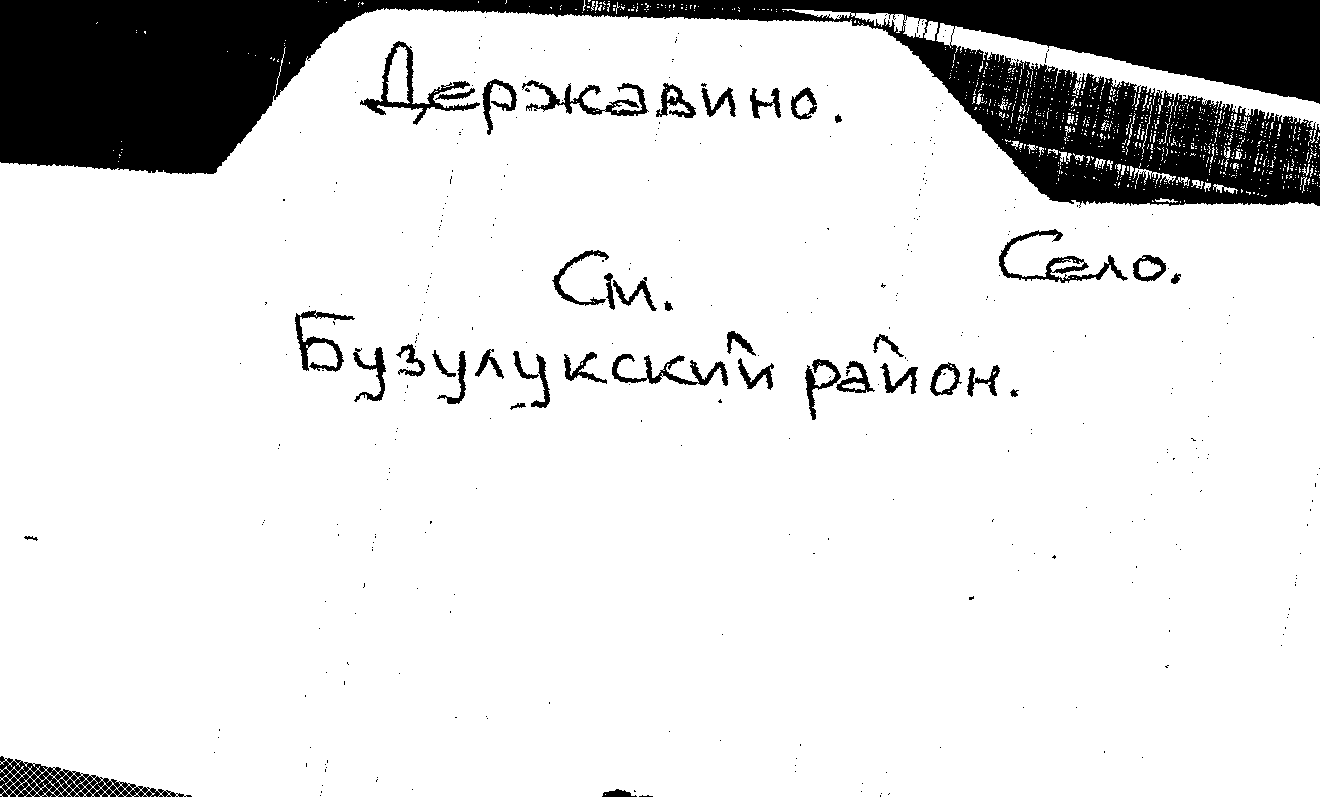 Державино.
Село.
См.
Бузулукский район.